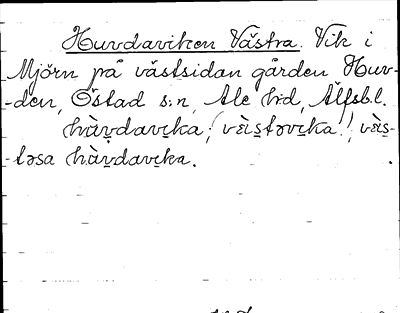 Huvdaviken Västra. Vik i
Mjörn på västsidan gården Huv-
-den, Östad s:n, Ale hd, Älfsb.l.
hàṿdavɩka, (vèi̯stərvɩka!, vèi̯s-
-təsa hàṿdavɩka.